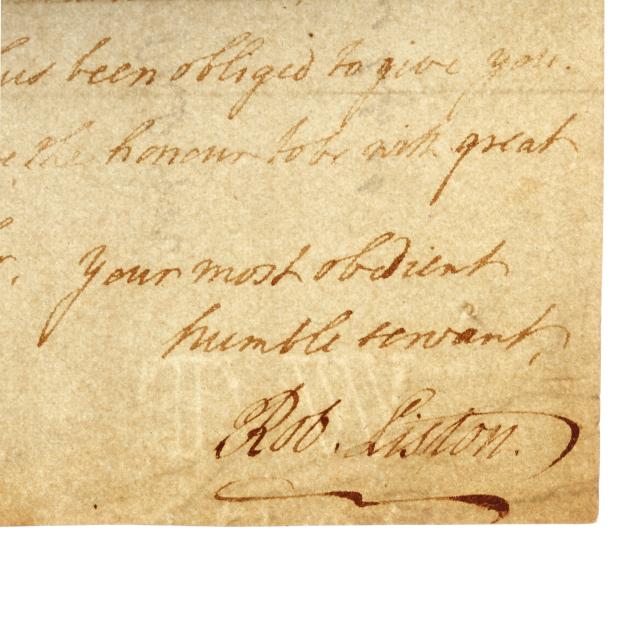 has been obliged to give you.
the honour to be with great
Your most obedient
humble servant,
Rob. Liston.